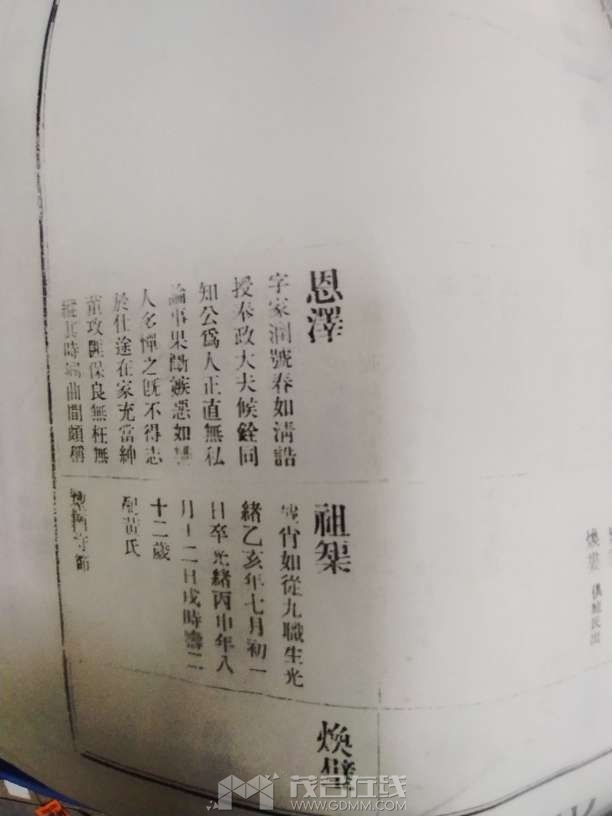 恩澤
字家潤號春如清誥
授奉政大夫候銓同
知公爲人正直無私
論事果斷嫉惡如
人多憚之既不得志
於仕途在家充當紳
董攻匪保良無枉無
縱其時鄉曲間頗稱
祖
宵如從九職生光
緒乙亥年七月初一
日卒光緒丙申年八
月十二日戌時壽二
十二歲
配黃氏
守節
煥
煥
俱
氏出
茂名在线
WWW.GDMM.COM